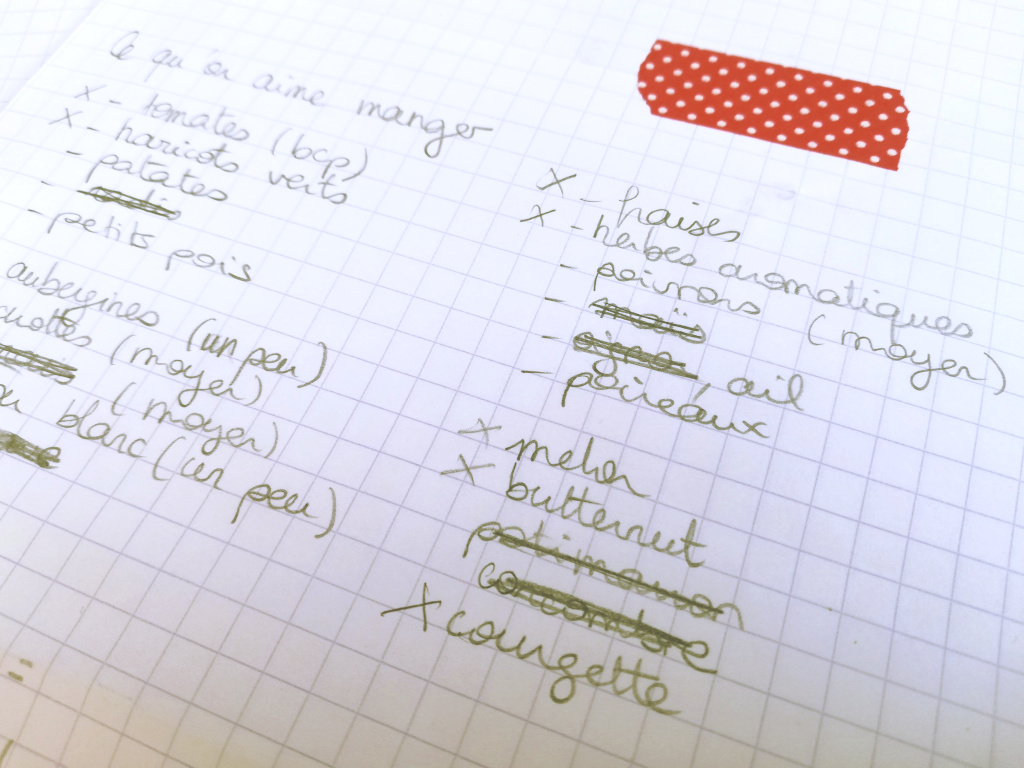 Ce qu'on aime manger
x - tomates (bcp)
x - haricots verts
- patates
-
- petits pois
aubergines (un peu)
(moyen)
(moyen)
blanc (un peu)
x - fraises
x - herbes aromatiques
- poivrons (moyen)
- maïs
- ail
- poireaux
x melon
x butternut
potimarron
concombre
x courgette